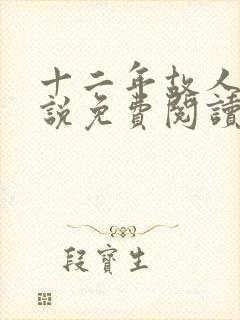 十二年故人
說免費閱讀
段寶生